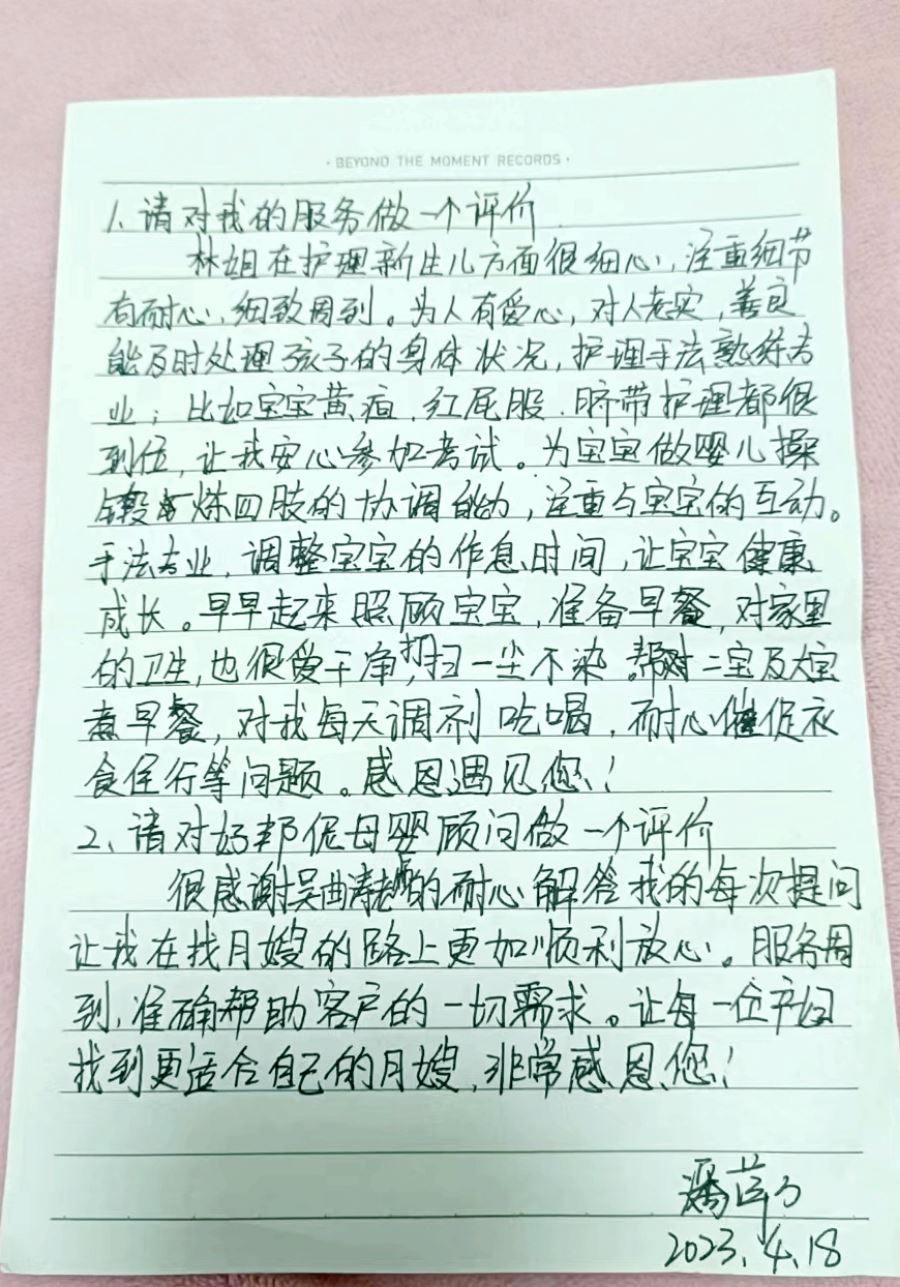 · BEYOND THE MOMENT RECORDS ·
1. 请对我的服务做一个评价
林姐在护理新生儿方面很细心，注重细节
有耐心，细致周到。为人有爱心，对人老实，善良
能及时处理孩子的身体状况，护理手法熟练专
业；比如宝宝黄疸，红屁股．脐带护理都很
到位，让我安心参加考试。为宝宝做婴儿操
锻炼四肢的协调能力，注重与宝宝的互动。
手法专业，调整宝宝的作息时间，让宝宝健康
成长。早早起来照顾宝宝，准备早餐，对家里
的卫生，也很爱干净，打扫一尘不染。帮二宝及大宝
煮早餐，对我每天调剂吃喝，耐心催促衣
食住行等问题。感恩遇见您！
2、请对好邦伲母婴顾问做一个评价
很感谢吴曲涛老师的耐心解答我的每次提问
让我在找月嫂的路上更加顺利放心。服务周
到，准确帮助客户的一切需求。让每一位产妇
找到更适合自己的月嫂，非常感恩您！
潘
2023.4.18